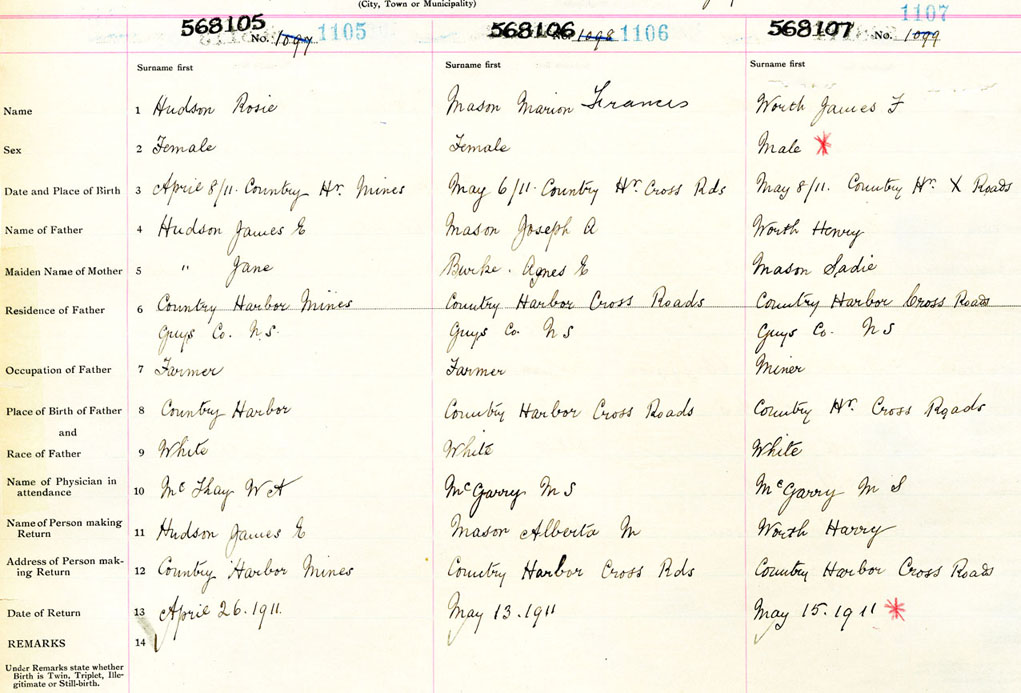 (City, Town or Municipality)
568105 No. 1097 1105 568106 No. 1098 1106 568107 No. 1099 1107
Surname first Surname first Surname first
Name 1 Hudson Rosie Mason Marion Francis Worth James F
Sex 2 Female Female Male *
Date and Place of Birth 3 April 8/11. Country Hr. Mines May 6/11. Country Hr. Cross Rds May 8/11. Country Hr. X Roads
Name of Father 4 Hudson James E Mason Joseph A Worth Henry
Maiden Name of Mother 5 " Jane Burke. Agnes E Mason Sadie
Residence of Father 6 Country Harbor Mines Country Harbor Cross Roads Country Harbor Cross Roads
Guys Co. N.S. Guys Co. N S Guys Co. N S
Occupation of Father 7 Farmer Farmer Miner
Place of Birth of Father 8 Country Harbor Country Harbor Cross Roads Country Hr. Cross Roads
and
Race of Father 9 White White White
Name of Physician in
attendance 10 Mc W A McGarry M S McGarry M S
Name of Person making
Return 11 Hudson James E Mason Alberta M Worth Harry
Address of Person mak-
ing Return 12 Country Harbor Mines Country Harbor Cross Rds Country Harbor Cross Roads
Date of Return 13 April 26. 1911. May 13. 1911 May 15. 1911 *
REMARKS 14
Under Remarks state whether
Birth is Twin, Triplet, Ille-
gitimate or Still-birth.